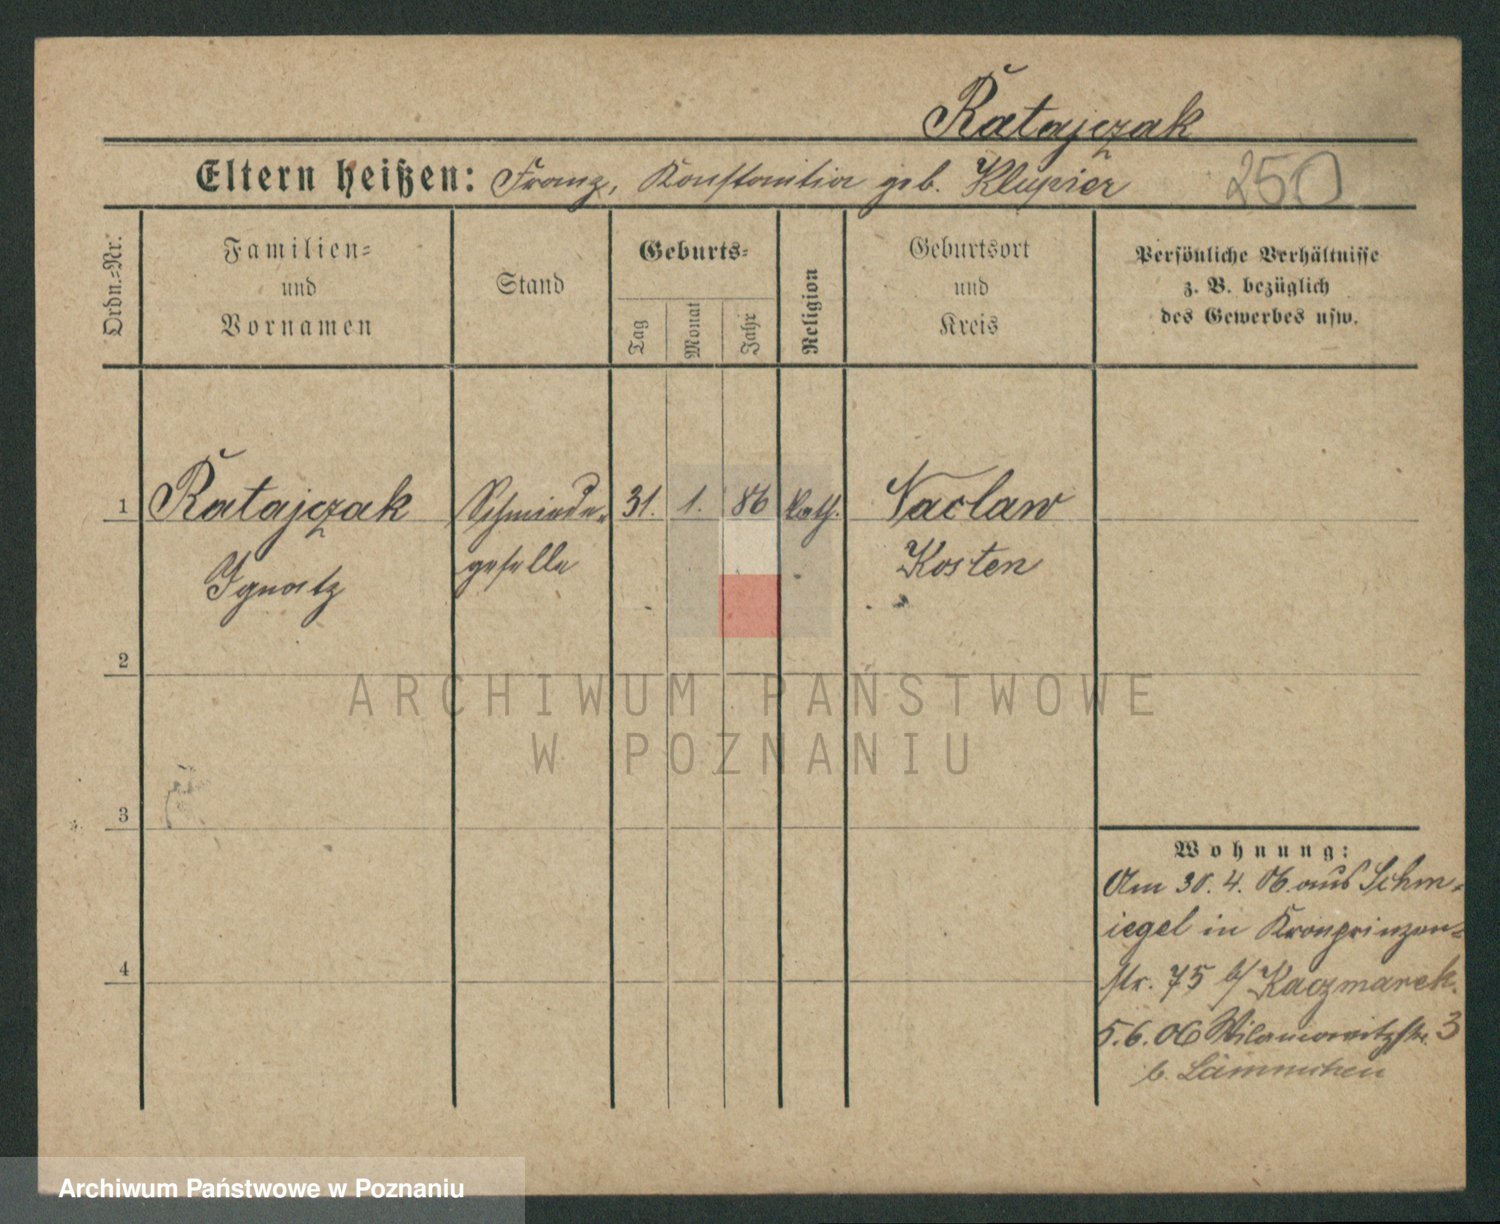 Ratajczak
Eltern heißen: Franz, Konstantia geb. Klupier
250
Ordn.-Nr.
Familien-
und
Vornamen
Stand
Geburts-
Tag
Monat
Jahr
Religion
Geburtsort
und
Kreis
Persönliche Verhältnisse
z. B. bezüglich
des Gewerbes usw.
1 Ratajczak Schmiede- 31. 1. 86 kath. Naclaw
Ignatz geselle Kosten
2
ARCHIWUM PAŃSTWOWE
W POZNANIU
3
Wohnung:
Am 30. 4. 06. aus Schm-
iegel in Kronprinzen-
str. 75 b/ Kaczmarek.
4
5. 6. 06 Wilamowitzstr. 3
b. Lämmchen
Archiwum Państwowe w Poznaniu